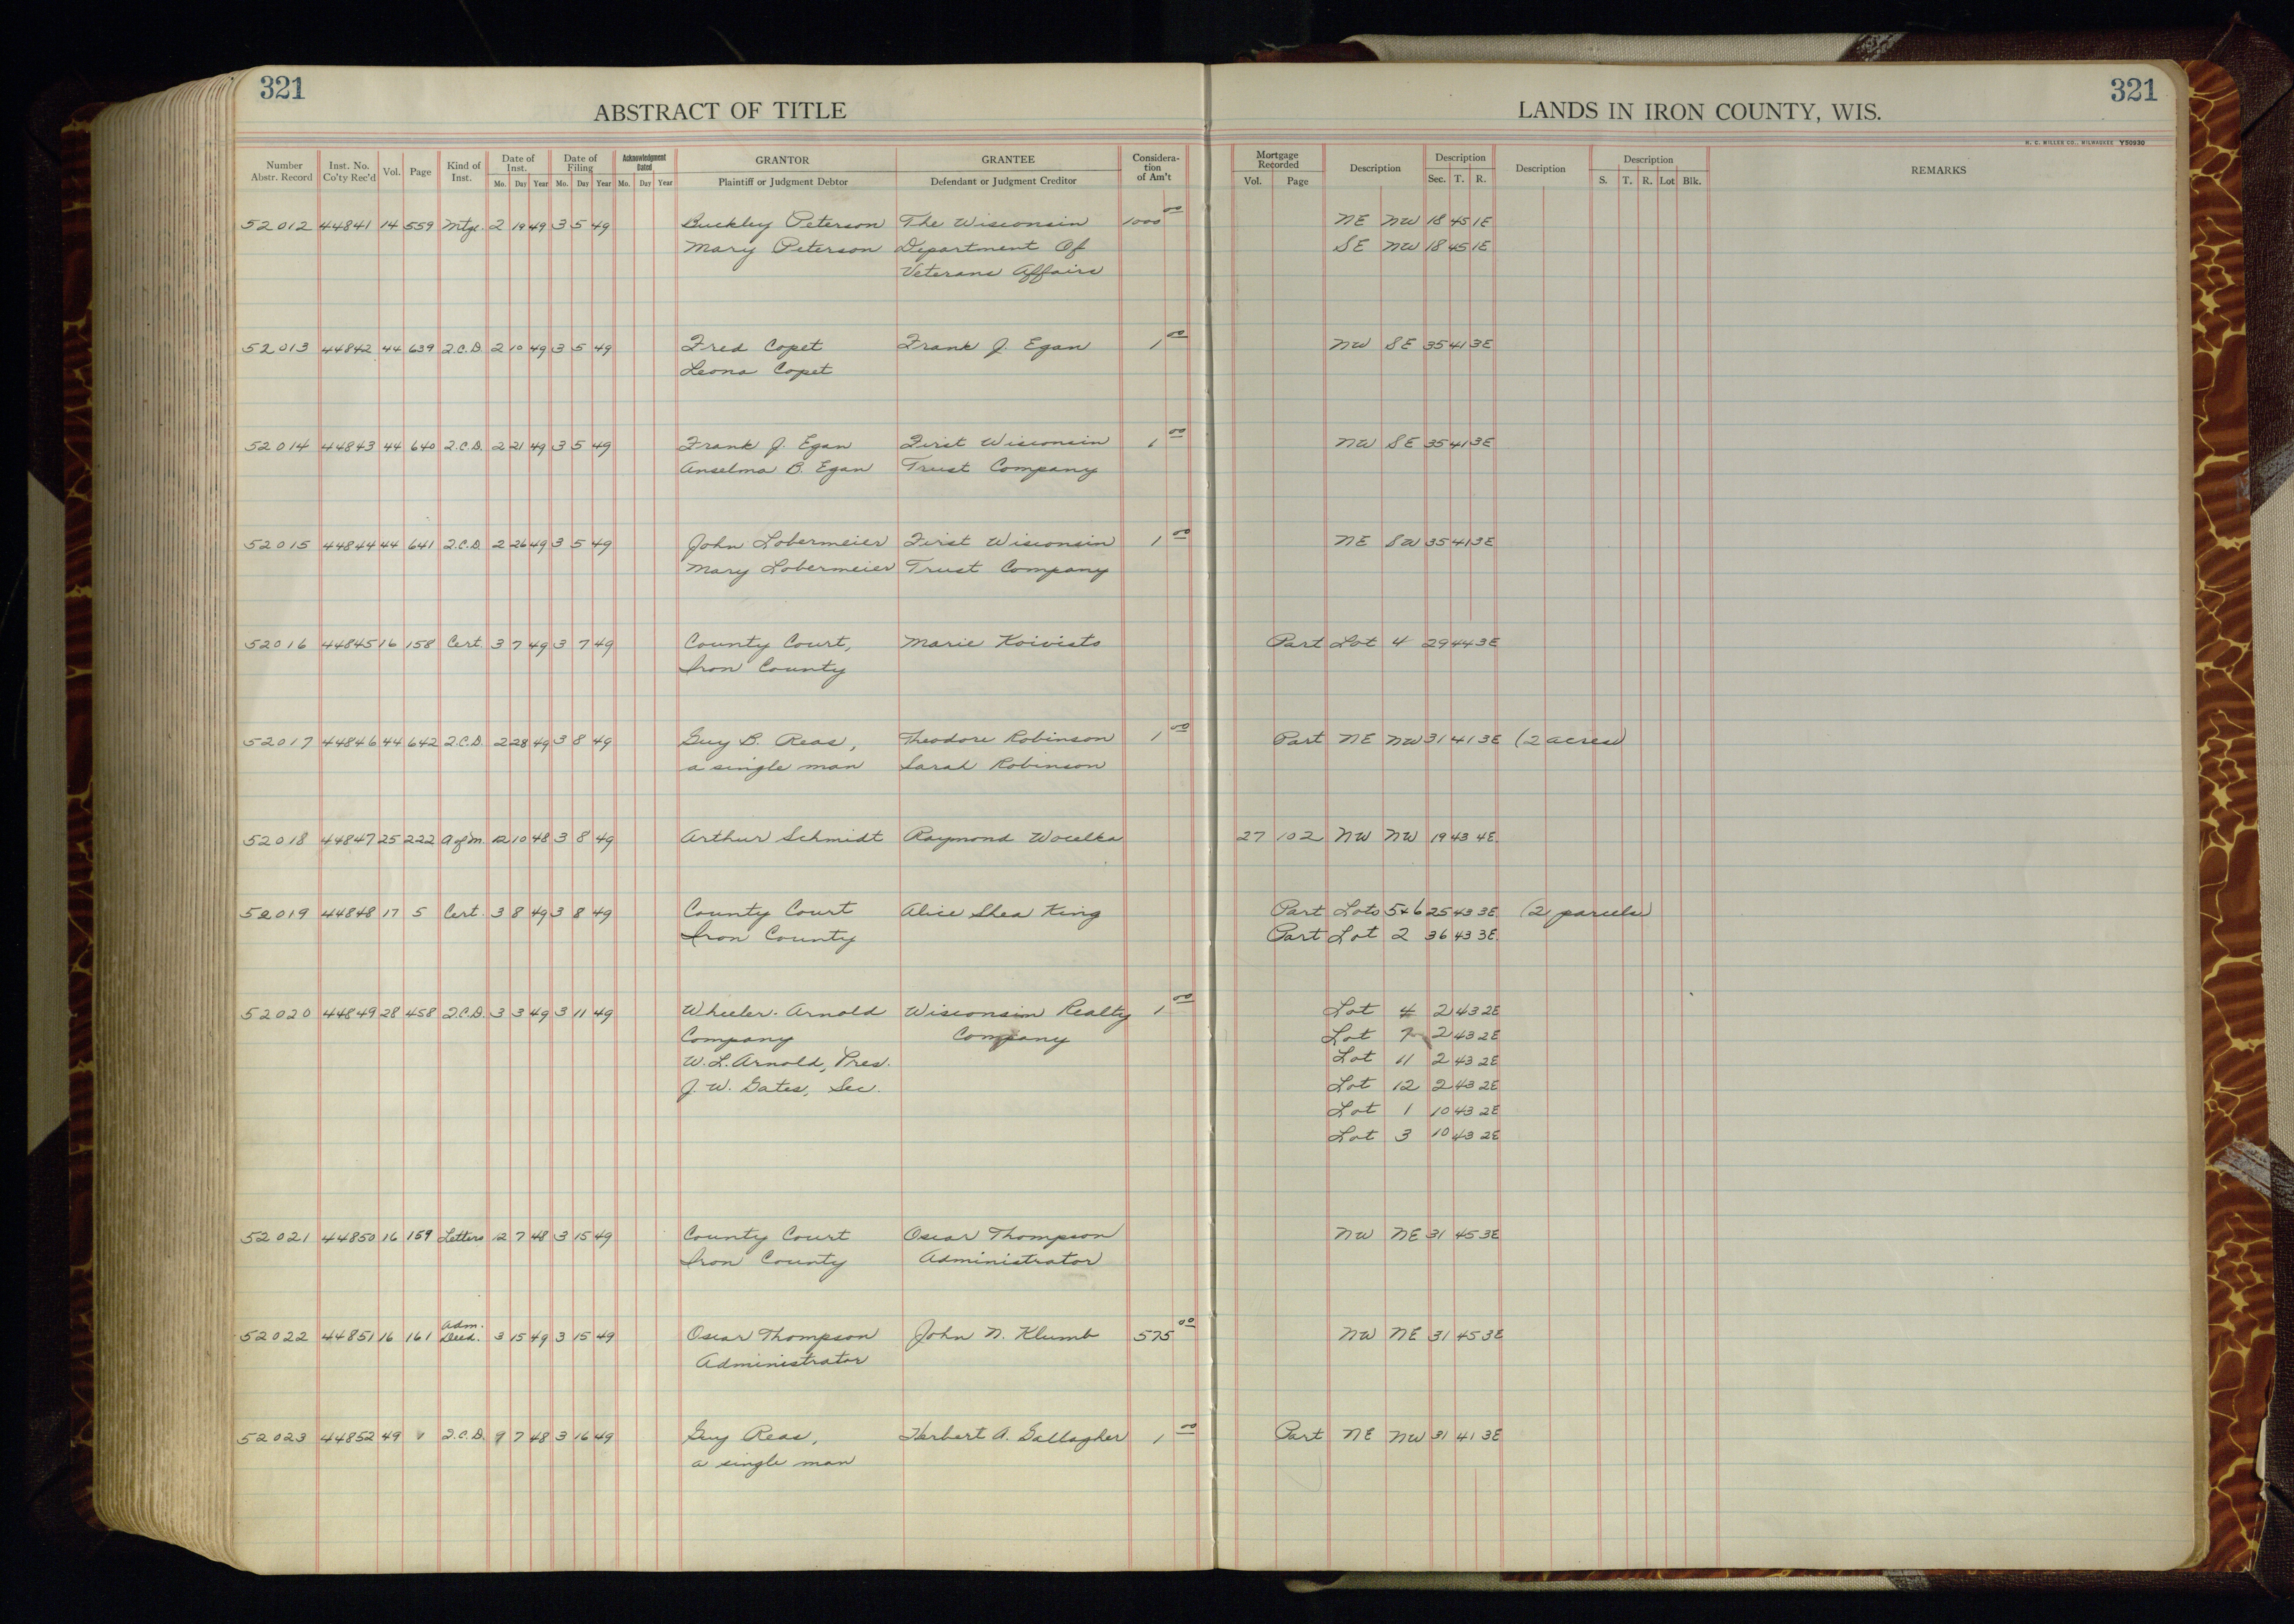 321
321
ABSTRACT OF TITLE
LANDS IN IRON COUNTY, WIS.
H. C. MILLER CO., MILWAUKEE Y50930
Number Abstr. Record Inst. No. Co'ty Rec'd Vol. Page Kind of Inst. Date of Inst. Mo. Day Year Date of Filing Mo. Day Year Acknowledgment Dated Mo. Day Year GRANTOR Plaintiff or Judgment Debtor GRANTEE Defendant or Judgment Creditor Considera-tion of Am't Mortgage Recorded Vol. Page Description Description Sec. T. R. Description Description S. T. R. Lot Blk. REMARKS
52012 44841 14 559 Mtge. 2 19 49 3 5 49 Buckley Peterson The Wisconsin 1000 00 NE NW 18 45 1E
Mary Peterson Department Of SE NW 18 45 1E
Veterans Affairs
52013 44842 44 639 Q.C.D. 2 10 49 3 5 49 Fred Copet Frank J. Egan 1 00 NW SE 35 41 3E
Leona Copet
52014 44843 44 640 Q.C.D. 2 21 49 3 5 49 Frank J. Egan First Wisconsin 1 00 NW SE 35 41 3E
Anselma B. Egan Trust Company
52015 44844 44 641 Q.C.D 2 26 49 3 5 49 John Lobermeier First Wisconsin 1 00 NE SW 35 41 3E
Mary Lobermeier Trust Company
52016 44845 16 158 Cert. 3 7 49 3 7 49 County Court, Marie Koivisto Part Lot 4 29 44 3E
Iron County
52017 44846 44 642 Q.C.D. 2 28 49 3 8 49 Guy B. Reas, Theodore Robinson 1 00 Part NE NW 31 41 3E (2 acres)
a single man Sarah Robinson
52018 44847 25 222 A of M. 12 10 48 3 8 49 Arthur Schmidt Raymond Wocelka 27 102 NW NW 19 43 4E.
52019 44848 17 5 Cert. 3 8 49 3 8 49 County Court Alice Shea King Part Lots 5+6 25 43 3E (2 parcels)
Iron County Part Lot 2 36 43 3E.
52020 44849 28 458 Q.C.D. 3 3 49 3 11 49 Wheeler-Arnold Wisconsin Realty 1 00 Lot 4 2 43 2E
Company Company Lot 7 2 43 2E
W. L. Arnold, Pres. Lot 11 2 43 2E
J. W. Gates, Sec. Lot 12 2 43 2E
Lot 1 10 43 2E
Lot 3 10 43 2E
52021 44850 16 159 Letters 12 7 48 3 15 49 County Court Oscar Thompson NW NE 31 45 3E
Iron County Administrator
52022 44851 16 161 Adm. Deed. 3 15 49 3 15 49 Oscar Thompson John N. Klumb 575 00 NW NE 31 45 3E
Administrator
52023 44852 49 Q.C.D. 9 7 48 3 16 49 Guy Reas, Herbert A. Gallagher 1 00 Part NE NW 31 41 3E
a single man